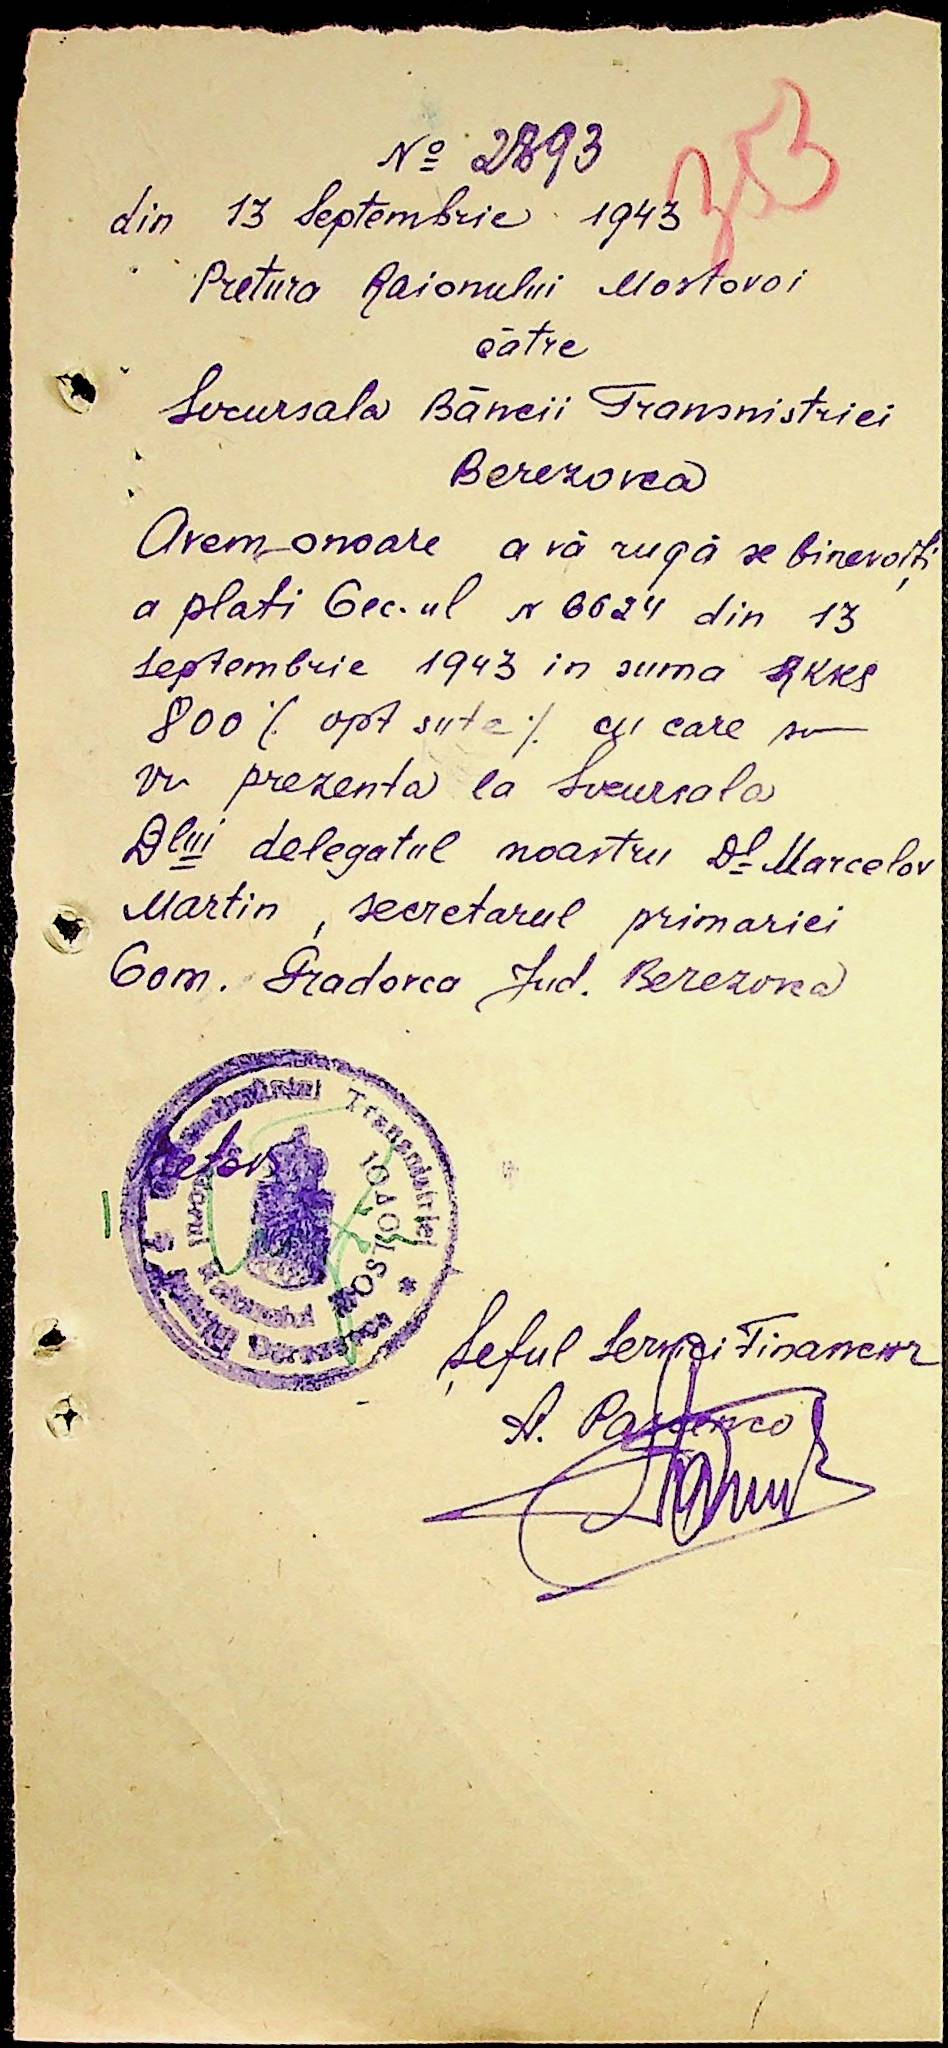 353
№ 2893
din 13 Septembrie 1943
Pretura Raionului Mostovoi
către
Sucursala Băncii Transnistriei
Berezovca
Avem onoare a vă rugă se binevoiți
a plati Cec-ul N 6624 din 13
septembrie 1943 in suma RKKS
800 ٪ opt sute ٪ cu care se
va prezenta la Sucursala
Dlui delegatul noastru Dl Marcelov
Martin, secretarul primariei
Com. Gradovca Jud. Berezovca
Pretor
Guvernământul Transnistriei
Prefectura Județului Berezovca
Pretura Raionului
MOSTOVOI
Șeful Servici Financiar
A. Parcenco